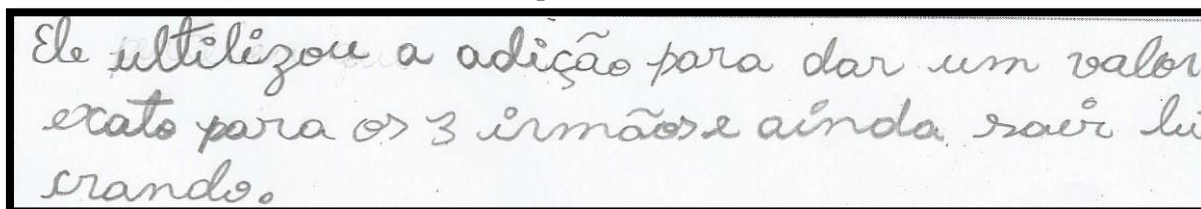 Ele ultilizou a adição para dar um valor
exato para os 3 irmãos e ainda sair lu
crando.